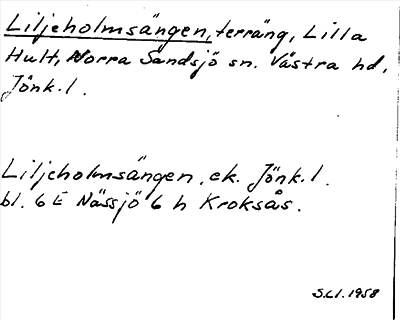 Liljeholmsängen, terräng, Lilla
Hult, Norra Sandsjö sn. Västra hd,
Jönk. l.
Liljeholmsängen, ek. Jönk. l.
bl. 6 E Nässjö 6 h Kroksås.
S.L.I. 1958